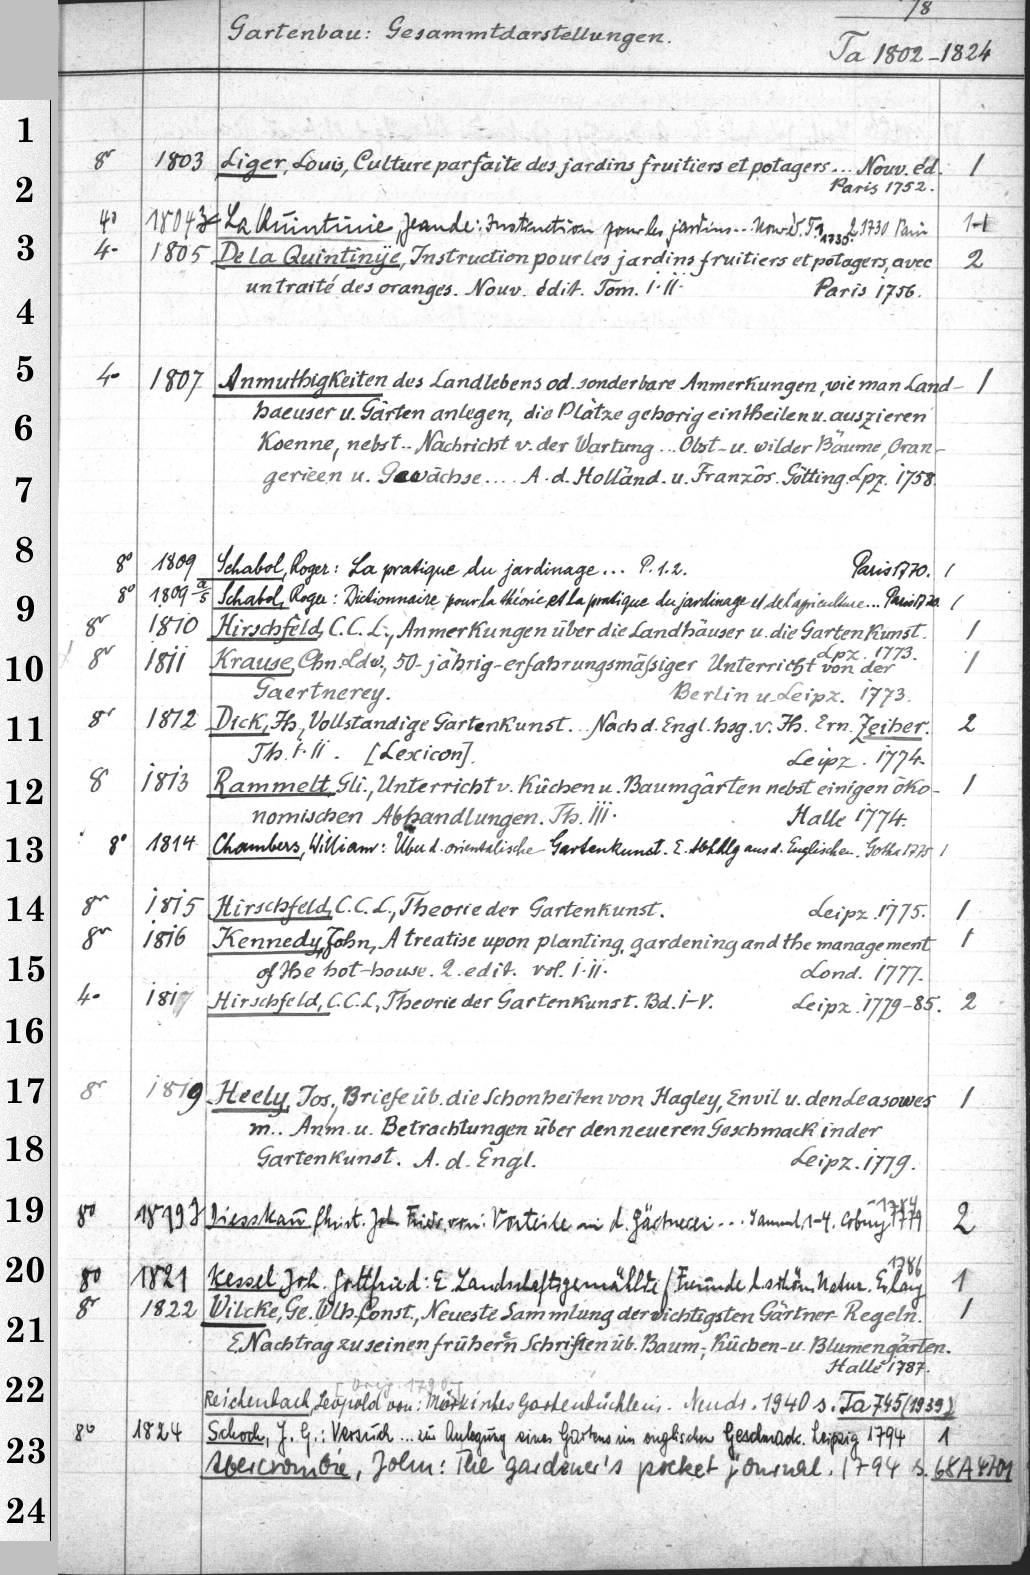 78
Gartenbau: Gesammtdarstellungen.
Ta 1802-1824
1
8r 1803 Liger, Louis, Culture parfaite des jardins fruitiers et potagers... Nouv. éd. 1
2
Paris 1752.
4° 1804 La Quintinie, Jean de: Instruction pour les jardins... Nouv. 1730 Paris
1730.
3
4- 1805 De la Quintinÿe, Instruction pour les jardins fruitiers et potagers, avec 2
un traité des oranges. Nouv. édit. Tom. I·II· Paris 1756.
4
5
4- 1807 Anmuthigkeiten des Landlebens od. sonderbare Anmerkungen, wie man Land- 1
haeuser u. Gärten anlegen, die Plätze gehorig eintheilen u. auszieren
6
Koenne, nebst.. Nachricht v. der Wartung... Obst- u. wilder Bäume, Oran-
gerieen u. Gewächse.... A. d. Holländ. u. Französ. Götting. Lpz. 1758.
7
8
8° 1809 Schabol, Roger: La pratique du jardinage... P. 1.2. Paris 1770. 1
8° 1809 a/5 Schabol, Roger: Dictionnaire pour la théorie et la pratique du jardinage et de l'agriculture... Paris 1770. 1
9
8r 1810 Hirschfeld, C. C. L., Anmerkungen über die Landhäuser u. die Gartenkunst. 1
Lpz. 1773.
10
8r 1811 Krause, Chn. Ldw., 50-jährig-erfahrungsmäsiger Unterricht von der 1
Gaertnerey. Berlin u. Leipz. 1773.
11
8r 1812 Dick, Th., Vollstandige Gartenkunst... Nach d. Engl. hsg. v. Th. Ern. Zeiher. 2
Th. I·II. [Lexicon]. Leipz. 1774.
12
8 1813 Rammelt, Gli., Unterricht v. Küchen u. Baumgärten nebst einigen öko- 1
nomischen Abhandlungen. Th. III· Halle 1774.
13
8° 1814 Chambers, William: Über d. orientalische Gartenkunst. E. Abhdlg aus d. Englischen. Gotha 1775 1
14
8r 1815 Hirschfeld, C. C. L., Theorie der Gartenkunst. Leipz. 1775. 1
8r 1816 Kennedy, John, A treatise upon planting, gardening and the management 1
15
of the hot-house. 2. edit. vol. I·II· Lond. 1777.
4- 1817 Hirschfeld, C. C. L., Theorie der Gartenkunst. Bd. I-V. Leipz. 1779-85. 2
16
17
8r 1819 Heely, Jos., Briefe üb. die Schonheiten von Hagley, Envil u. den Leasowes 1
m.. Anm. u. Betrachtungen über den neueren Geschmack in der
18
Gartenkunst. A. d. Engl. Leipz. 1779.
19
-1784
8° 1819 Diesskau, Christ. Joh. Friedr. von: Vorteile in d. Gärtnerei... Samml. 1-4. Coburg 1779 2
20
1786
8° 1821 Kessel, Joh. Gottfried: E. Landschaftsgemählde f. Freunde d. schön. Natur. Erlang 1
8r 1822 Wilcke, Ge. Wlh. Const., Neueste Sammlung der wichtigsten Gärtner-Regeln. 1
21
E. Nachtrag zu seinen frühern Schriften üb. Baum-, Küchen- u. Blumengärten.
Halle 1787.
22
[Orig. 1790]
Reichenbach, Leopold von: Märkisches Gartenbüchlein. Neudr. 1940 s. Ta 745(1939)
8° 1824 Schoch, J. G.: Versuch... zu Anlegung eines Gartens im englischen Geschmack. Leipzig 1794 1
23
Abercrombie, John: The gardener's pocket journal. 1794 s. 68A4701
24